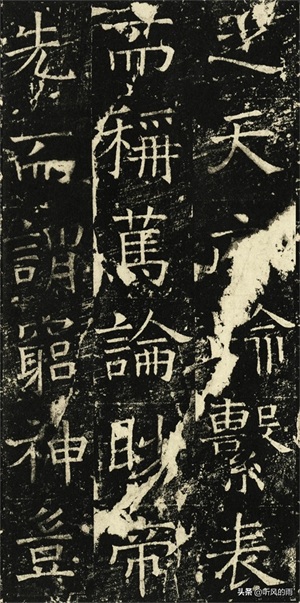 之天繫表
而稱篤論眇帝
先而謂窮神豈
头条 @听风的雨